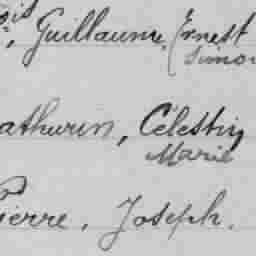 ois, Guillaume, Ernest
(Simon
athurin, Célestin
Marie
Pierre, Joseph.